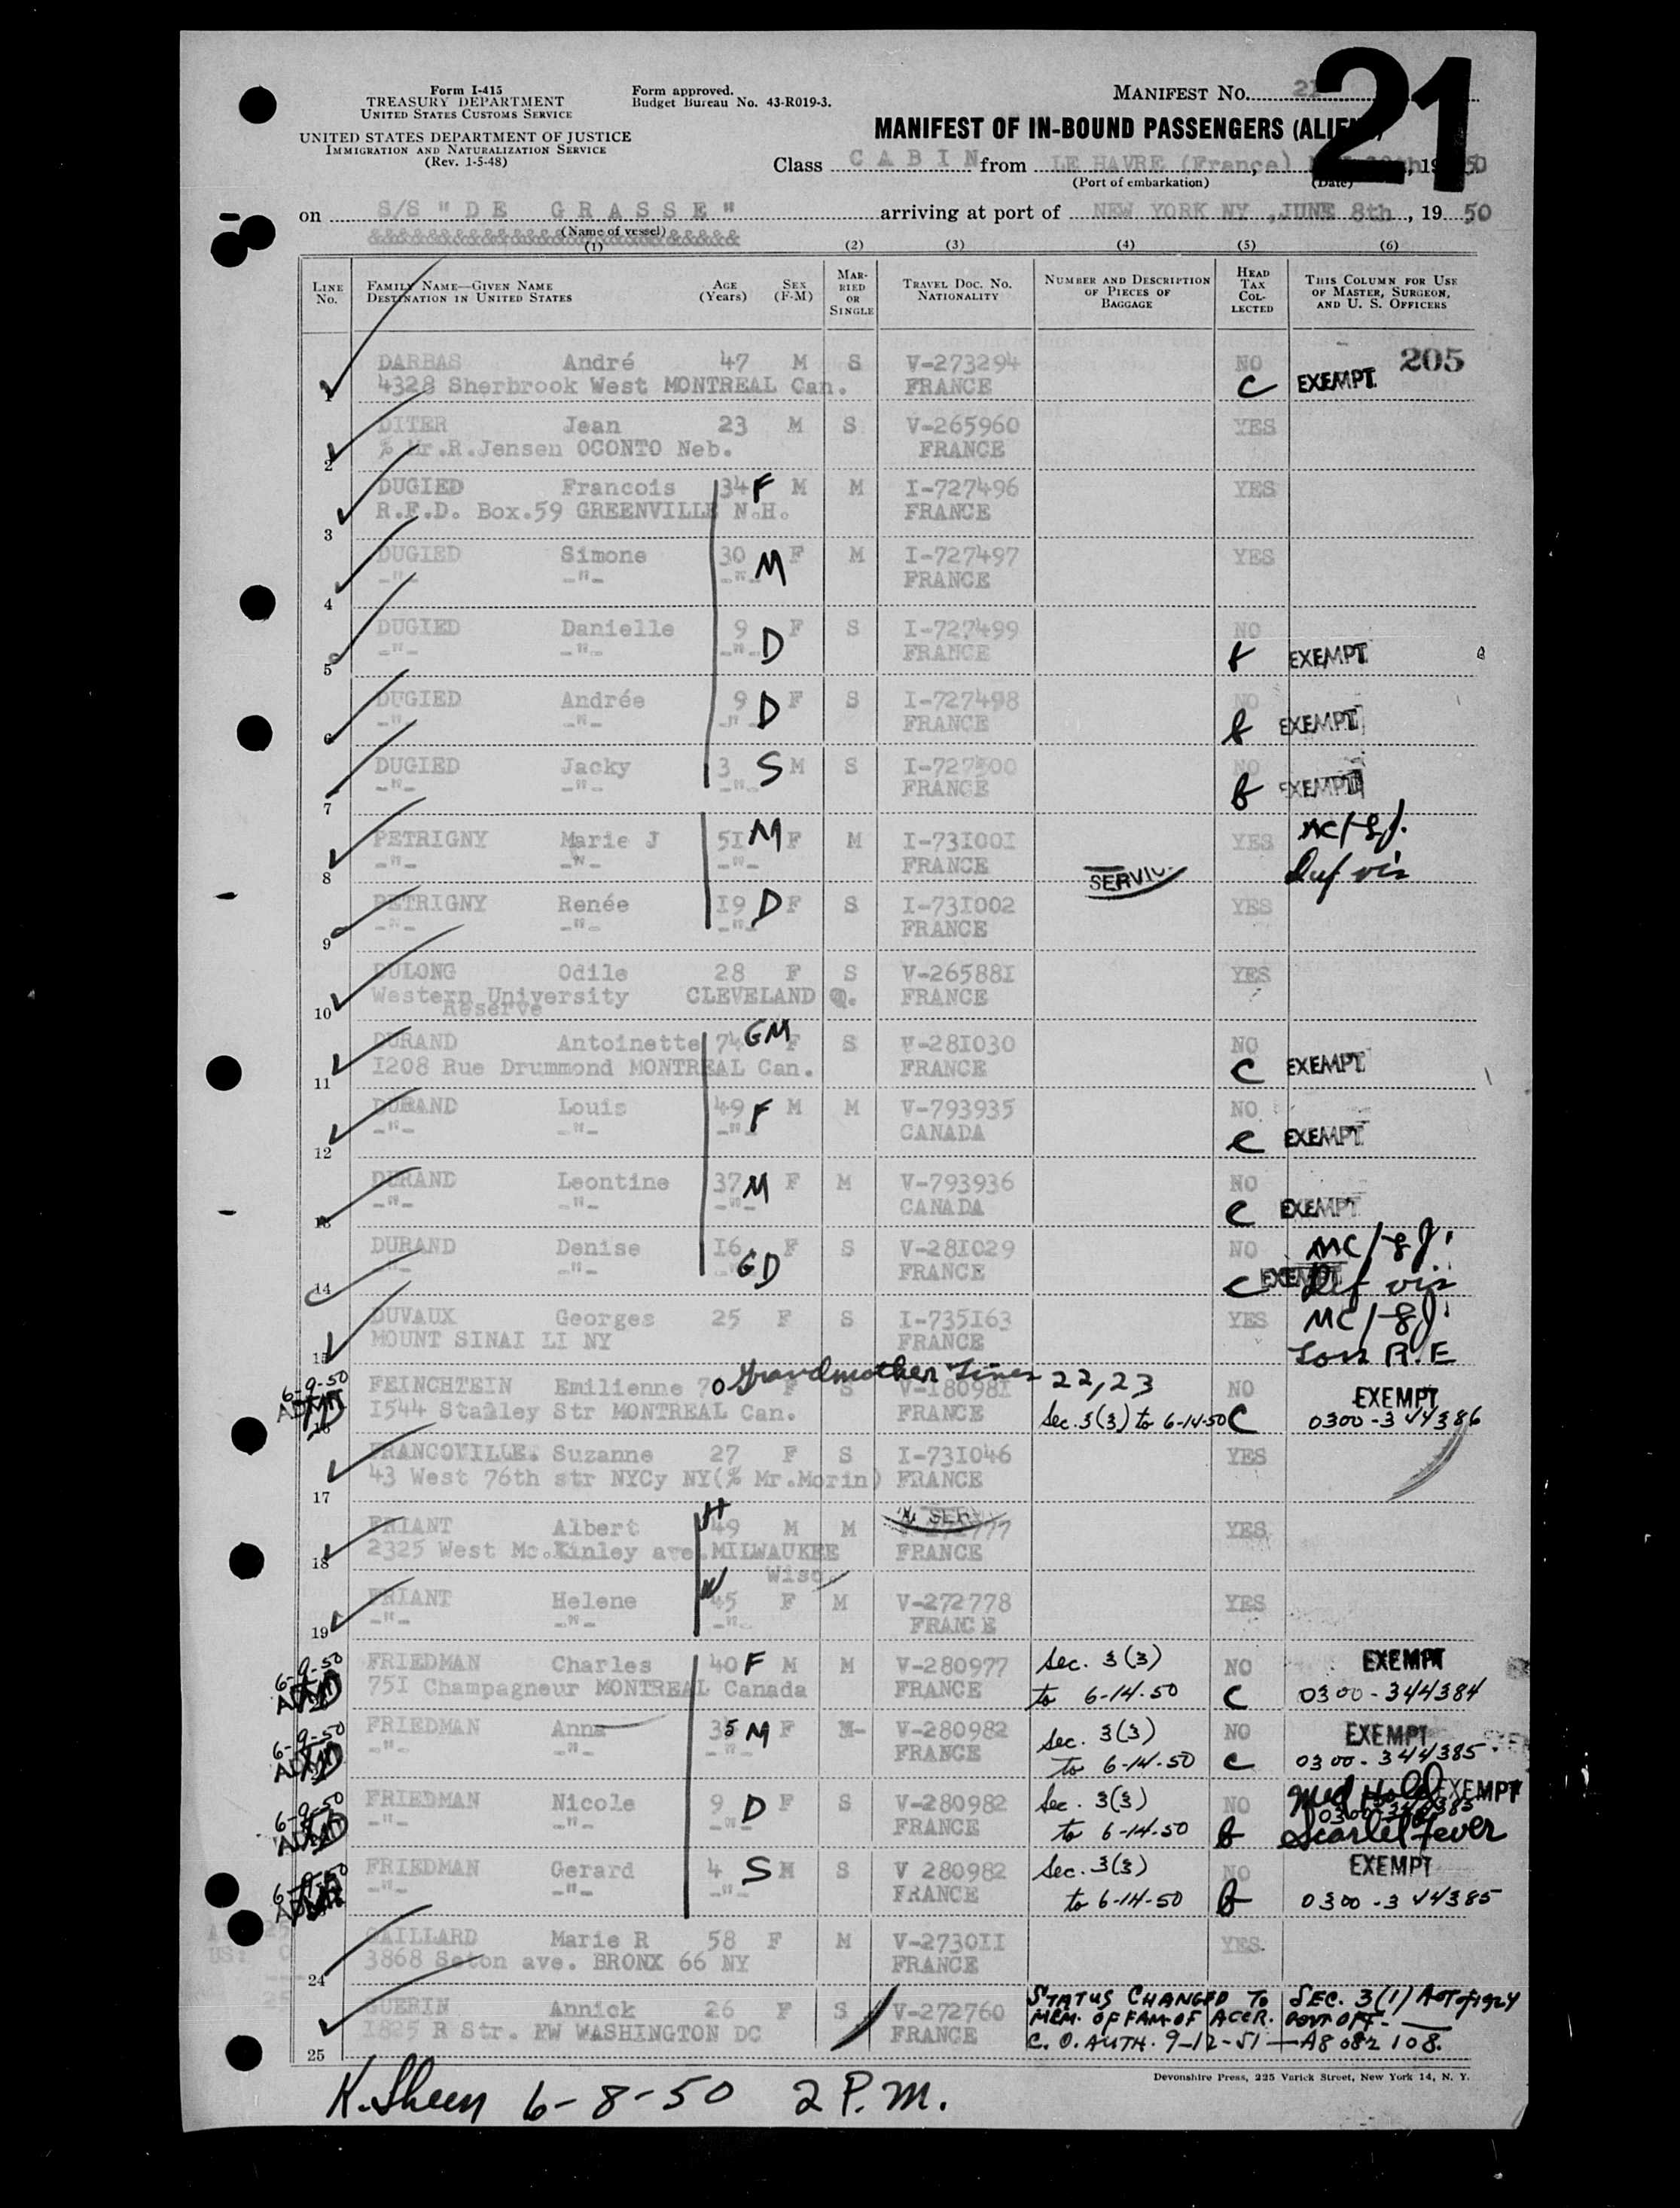 21
Form I-415
TREASURY DEPARTMENT
UNITED STATES CUSTOMS SERVICE
UNITED STATES DEPARTMENT OF JUSTICE
IMMIGRATION AND NATURALIZATION SERVICE
(Rev. 1-5-48)
Form approved.
Budget Bureau No. 43-R019-3.
MANIFEST No. 21
MANIFEST OF IN-BOUND PASSENGERS
Class CABIN from LE HAVRE (France) , 1950
(Port of embarkation) (Date)
on S/S "DE GRASSE" arriving at port of NEW YORK NY, JUNE 8th, 1950
(Name of vessel)
(1) (2) (3) (4) (5) (6)
LINE No. FAMILY NAME—GIVEN NAME DESTINATION IN UNITED STATES AGE (Years) SEX (F-M) MARRIED OR SINGLE TRAVEL DOC. NO. NATIONALITY NUMBER AND DESCRIPTION OF PIECES OF BAGGAGE HEAD TAX COLLECTED THIS COLUMN FOR USE OF MASTER, SURGEON, AND U. S. OFFICERS
205
DARBAS André 47 M S V-273294 NO
1 4328 Sherbrook West MONTREAL Can. FRANCE C EXEMPT
DITER Jean 23 M S V-265960 YES
2 % Mr.R.Jensen OCONTO Neb. FRANCE
DUGIED Francois 34 F M M I-727496 YES
R.F.D. Box.59 GREENVILLE N.H. FRANCE
3
DUGIED Simone 30 F M I-727497 YES
-"- -"- -"- M FRANCE
4
DUGIED Danielle 9 F S I-727499 NO
5 -"- -"- -"- D FRANCE EXEMPT
DUGIED Andrée 9 D F S I-727498 NO
6 -"- -"- -"- FRANCE EXEMPT
DUGIED Jacky 3 S M S I-727500 NO
7 -"- -"- -"- FRANCE EXEMPT
PETRIGNY Marie J 51 M F M I-731001 YES
8 -"- -"- -"- FRANCE
PETRIGNY Renée 19 D F S I-731002 YES
9 -"- -"- -"- FRANCE
DULONG Odile 28 F S V-265881 YES
Western University CLEVELAND O. FRANCE
10 Reserve
DURAND Antoinette 74 GM F S V-281030 NO
11 1208 Rue Drummond MONTREAL Can. FRANCE C EXEMPT
DURAND Louis 49 F M M V-793935 NO
12 -"- -"- -"- CANADA C EXEMPT
DURAND Leontine 37 M F M V-793936 NO
13 -"- -"- -"- CANADA C EXEMPT
DURAND Denise 16 F S V-281029 NO MC/
14 -"- -"- GD FRANCE C EXEMPT
DUVAUX Georges 25 F S I-735163 YES MC/
15 MOUNT SINAI LI NY FRANCE R.E
Grandmother Lines 22, 23
6-9-50 FEINCHTEIN Emilienne 70 F S V-180981 NO EXEMPT
16 1544 Stanley Str MONTREAL Can. FRANCE Sec. 3(3) to 6-14-50 C 0300-344386
FRANCOVILLE. Suzanne 27 F S I-731046 YES
17 43 West 76th str NYCy NY(% Mr.Morin) FRANCE
FRIANT Albert 49 H M M YES
18 2325 West Mc.Kinley ave.MILWAUKEE FRANCE
Wisc
FRIANT Helene 45 W F M V-272778 YES
19 -"- -"- -"- FRANCE
6-9-50 FRIEDMAN Charles 40 F M M V-280977 Sec. 3(3) NO EXEMPT
751 Champagneur MONTREAL Canada FRANCE to 6-14-50 C 0300-344384
6-9-50 FRIEDMAN Anna 35 M F M V-280982 Sec. 3(3) NO EXEMPT
-"- -"- -"- FRANCE to 6-14-50 C 0300-344385
6-9-50 FRIEDMAN Nicole 9 D F S V-280982 Sec. 3(3) NO Med Hold EXEMPT
-"- -"- -"- FRANCE to 6-14-50 0300-344385 Scarlet fever
6-9-50 FRIEDMAN Gerard 4 S M S V 280982 Sec. 3(3) NO EXEMPT
-"- -"- -"- FRANCE to 6-14-50 0300-344385
GAILLARD Marie R 58 F M V-273011 YES
24 3868 Seton ave. BRONX 66 NY FRANCE
GUERIN Annick 26 F S V-272760 STATUS CHANGED TO SEC. 3(1) ACT of 1924
1825 R Str. NW WASHINGTON DC FRANCE MEM. OF FAM. OF ACCR. GOVT OFF.
25 C. O. AUTH. 9-12-51 — A8 082 108.
Devonshire Press, 225 Varick Street, New York 14, N. Y.
K. Sheen 6-8-50 2 P.M.